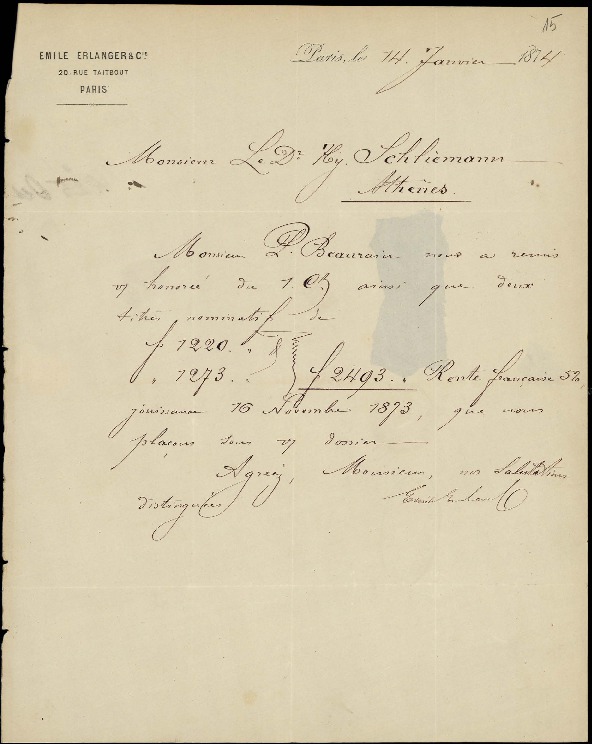 15
EMILE ERLANGER & Cie
20 RUE TAITBOUT
PARIS
Paris, le 14 Janvier 1874
Monsieur Le Dr Hy. Schliemann
Athènes.
Monsieur P. Beaurain nous a remis
v/ honorée du 7. Ct ainsi que deux
titres nominatifs de
f 1220. "
" 1273. " } f 2493. " Rente française 5%,
jouissance 16 Novembre 1873, que nous
plaçons sous v/ dossier —
Agréez, Monsieur, nos salutations
distinguées